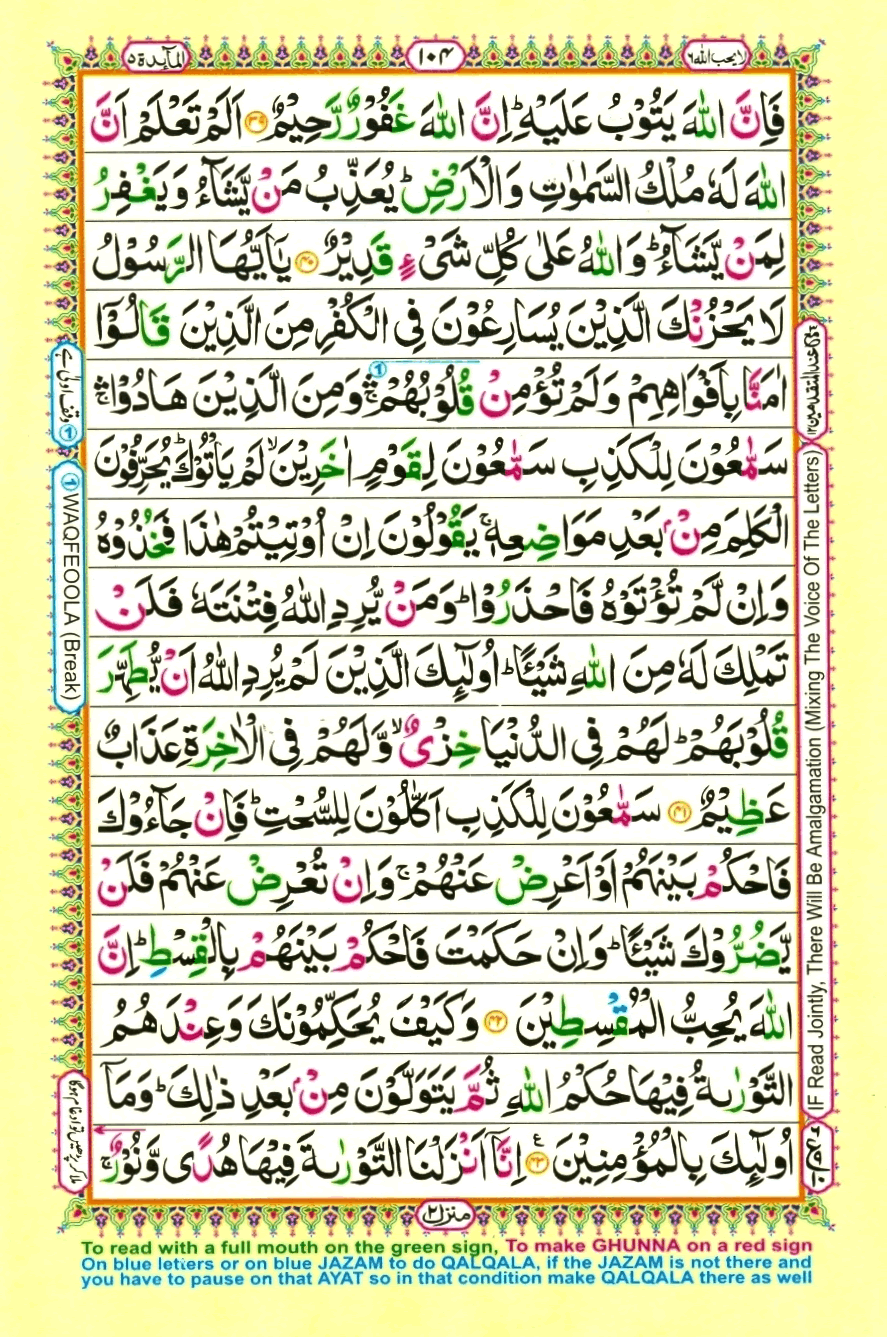 المآىِٕدة ۵
۱۰۴
لا یحب اللہ ۶
فَاِنَّ اللّٰهَ یَتُوْبُ عَلَیْهِ ؕ اِنَّ اللّٰهَ غَفُوْرٌ رَّحِیْمٌ ﴿۳۹﴾ اَلَمْ تَعْلَمْ اَنَّ
اللّٰهَ لَهٗ مُلْكُ السَّمٰوٰتِ وَالْاَرْضِ ؕ یُعَذِّبُ مَنْ یَّشَآءُ وَیَغْفِرُ
لِمَنْ یَّشَآءُ ؕ وَاللّٰهُ عَلٰی كُلِّ شَیْءٍ قَدِیْرٌ ﴿۴۰﴾ یٰۤاَیُّهَا الرَّسُوْلُ
لَا یَحْزُنْكَ الَّذِیْنَ یُسَارِعُوْنَ فِی الْكُفْرِ مِنَ الَّذِیْنَ قَالُوْۤا
اٰمَنَّا بِاَفْوَاهِهِمْ وَلَمْ تُؤْمِنْ قُلُوْبُهُمْ ۛۚ وَمِنَ الَّذِیْنَ هَادُوْا ۛۚ
سَمّٰعُوْنَ لِلْكَذِبِ سَمّٰعُوْنَ لِقَوْمٍ اٰخَرِیْنَ ۙ لَمْ یَاْتُوْكَ ؕ یُحَرِّفُوْنَ
الْكَلِمَ مِنْۢ بَعْدِ مَوَاضِعِهٖ ۚ یَقُوْلُوْنَ اِنْ اُوْتِیْتُمْ هٰذَا فَخُذُوْهُ
وَاِنْ لَّمْ تُؤْتَوْهُ فَاحْذَرُوْا ؕ وَمَنْ یُّرِدِ اللّٰهُ فِتْنَتَهٗ فَلَنْ
تَمْلِكَ لَهٗ مِنَ اللّٰهِ شَیْـًٔا ؕ اُولٰٓىِٕكَ الَّذِیْنَ لَمْ یُرِدِ اللّٰهُ اَنْ یُّطَهِّرَ
قُلُوْبَهُمْ ؕ لَهُمْ فِی الدُّنْیَا خِزْیٌ ۙ وَّلَهُمْ فِی الْاٰخِرَةِ عَذَابٌ
عَظِیْمٌ ﴿۴۱﴾ سَمّٰعُوْنَ لِلْكَذِبِ اَكّٰلُوْنَ لِلسُّحْتِ ؕ فَاِنْ جَآءُوْكَ
فَاحْكُمْ بَیْنَهُمْ اَوْ اَعْرِضْ عَنْهُمْ ۚ وَاِنْ تُعْرِضْ عَنْهُمْ فَلَنْ
یَّضُرُّوْكَ شَیْـًٔا ؕ وَاِنْ حَكَمْتَ فَاحْكُمْ بَیْنَهُمْ بِالْقِسْطِ ؕ اِنَّ
اللّٰهَ یُحِبُّ الْمُقْسِطِیْنَ ﴿۴۲﴾ وَكَیْفَ یُحَكِّمُوْنَكَ وَعِنْدَهُمُ
التَّوْرٰىةُ فِیْهَا حُكْمُ اللّٰهِ ثُمَّ یَتَوَلَّوْنَ مِنْۢ بَعْدِ ذٰلِكَ ؕ وَمَاۤ
اُولٰٓىِٕكَ بِالْمُؤْمِنِیْنَ ﴿۴۳﴾ اِنَّاۤ اَنْزَلْنَا التَّوْرٰىةَ فِیْهَا هُدًی وَّنُوْرٌ ۚ
منزل ۲
وقف اولیٰ ہے ①
① WAQFEOOLA (Break)
ملا کر پڑھیں تو ادغام ہوگا
IF Read Jointly, There Will Be Amalgamation (Mixing The Voice Of The Letters)
To read with a full mouth on the green sign, To make GHUNNA on a red sign
On blue letters or on blue JAZAM to do QALQALA, if the JAZAM is not there and
you have to pause on that AYAT so in that condition make QALQALA there as well